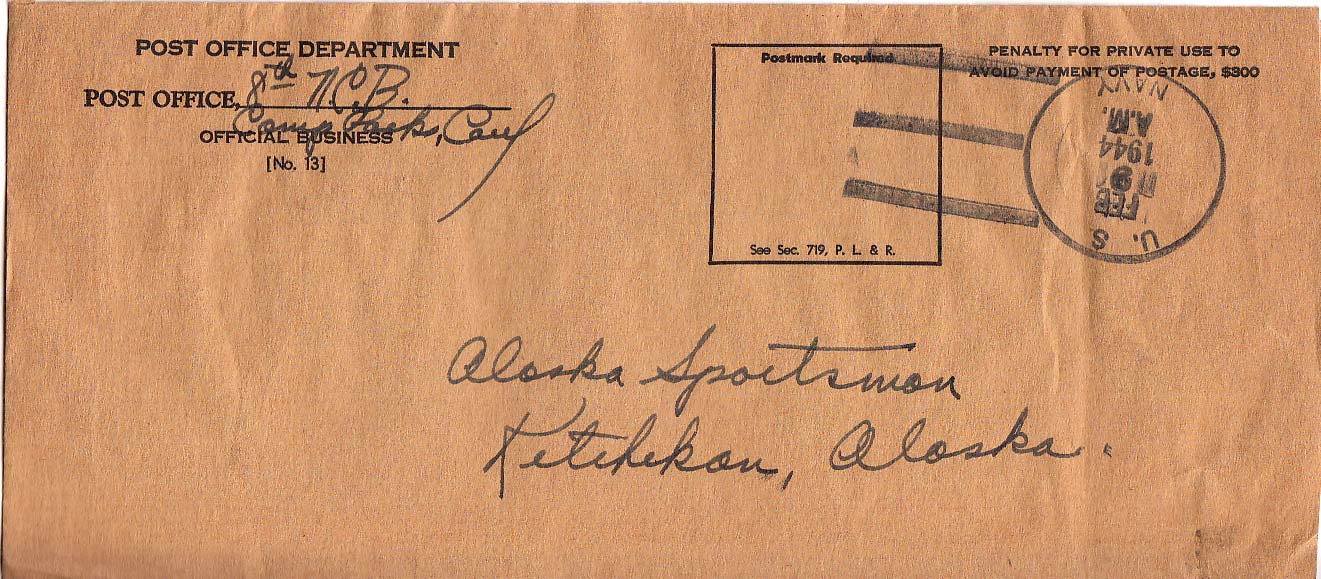 POST OFFICE DEPARTMENT
POST OFFICE, 8th N.C.B.
Camp Parks, Calif
OFFICIAL BUSINESS
[No. 13]
Postmark Required
See Sec. 719, P. L. & R.
PENALTY FOR PRIVATE USE TO
AVOID PAYMENT OF POSTAGE, $300
U. S.
FEB
1944
A.M.
NAVY
Alaska Sportsman
Ketchikan, Alaska.